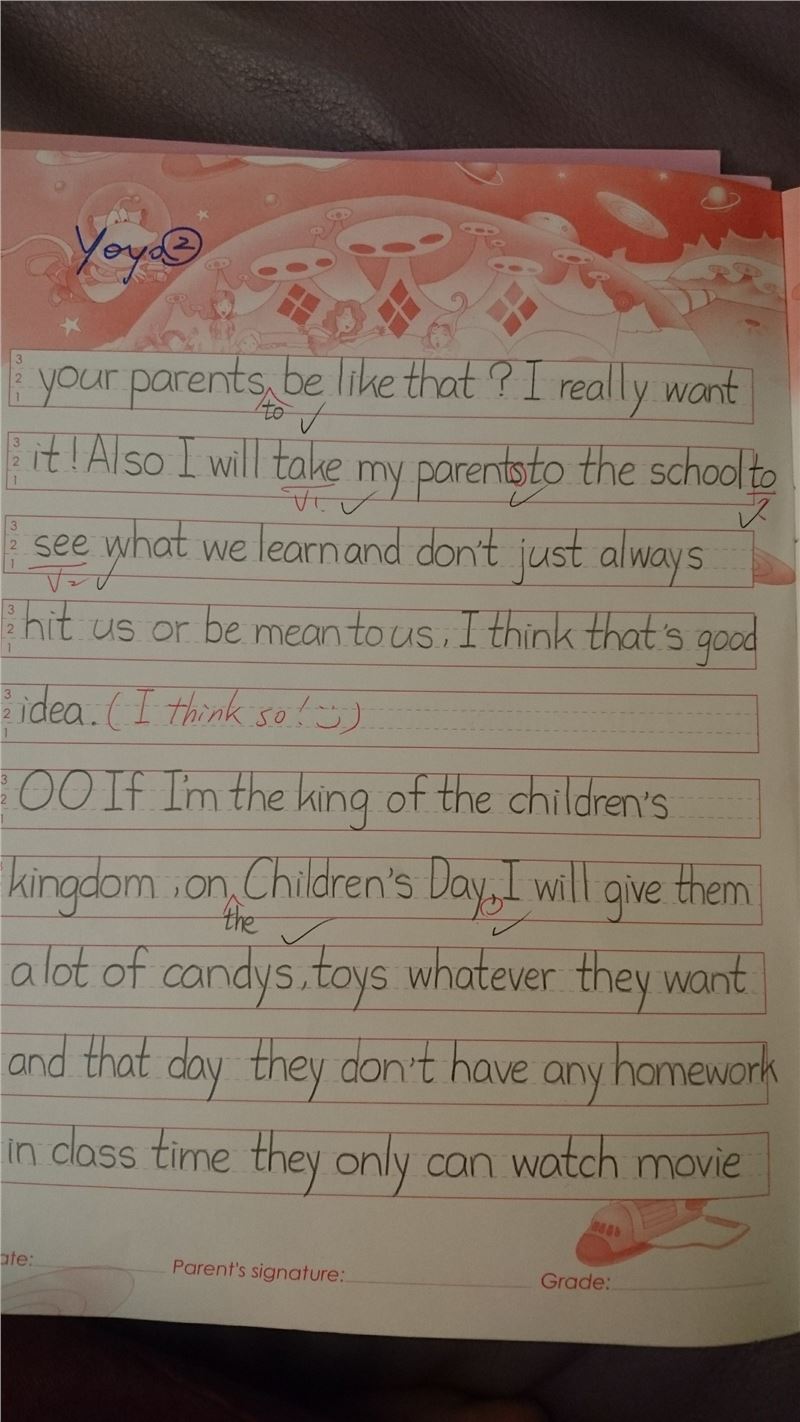 Yoyo ②
your parents be like that ? I really want
to
it! Also I will take my parents to the school to
V1
see what we learn and don't just always
V2
hit us or be mean to us, I think that's good
idea. ( I think so! )
OO If I'm the king of the children's
kingdom , on Children's Day, I will give them
the
a lot of candys, toys whatever they want
and that day they don't have any homework
in class time they only can watch movie
ate:
Parent's signature:
Grade:
3
2
1
3
2
1
3
2
1
3
2
1
3
2
1
3
2
1